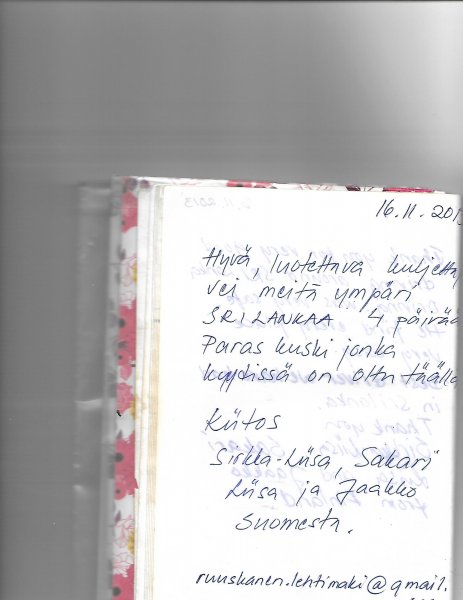 16.11.201
Hyvä, luotettava kuljetta
vei meitä ympäri
SRILANKAA 4 päivää
Paras kuski jonka
kyydissä on oltu täällä
Kiitos
Sirkka-Liisa, Sakari
Liisa ja Jaakko
Suomesta.
ruuskanen.lehtimaki@gmail.